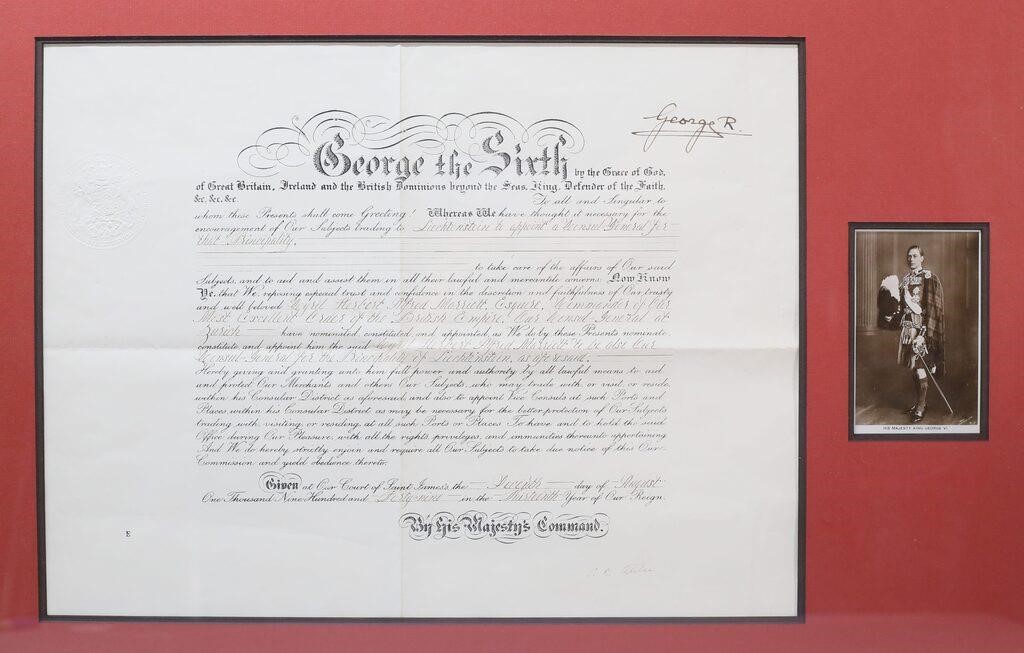 George R.
George the Sixth by the Grace of God,
of Great Britain, Ireland and the British Dominions beyond the Seas, King, Defender of the Faith,
&c, &c, &c. To all and Singular to
whom these Presents shall come Greeting! Whereas We have thought it necessary for the
encouragement of Our Subjects trading to Liechtenstein to appoint a Consul-General for
that Principality,
to take care of the affairs of Our said
Subjects, and to aid and assist them in all their lawful and mercantile concerns: Now Know
Ye, that We, reposing especial trust and confidence in the discretion and faithfulness of Our trusty
and well beloved Herbert Alfred Marriott, Esquire, Commander of Our
Most Excellent Order of the British Empire, Our Consul-General at
Zurich have nominated, constituted, and appointed, as We do by these Presents nominate,
constitute and appoint him the said Alfred Marriott to be also Our
Consul-General for the Principality of Liechtenstein, as aforesaid.
Hereby giving and granting unto him full power and authority, by all lawful means to aid
and protect Our Merchants and others Our Subjects, who may trade with or visit, or reside
within his Consular District as aforesaid, and also to appoint Vice Consuls at such Ports and
Places within his Consular District as may be necessary for the better protection of Our Subjects
trading with, visiting, or residing, at all such Ports or Places. To have and to hold the said
Office during Our Pleasure, with all the rights, privileges, and immunities thereunto appertaining
And We do hereby strictly enjoin and require all Our Subjects to take due notice of this Our
Commission and yield obedience thereto.
Given at Our Court of Saint James's, the day of August
One Thousand Nine Hundred and Forty-nine in the Thirteenth Year of Our Reign.
By His Majesty's Command,
E
HIS MAJESTY KING GEORGE VI.